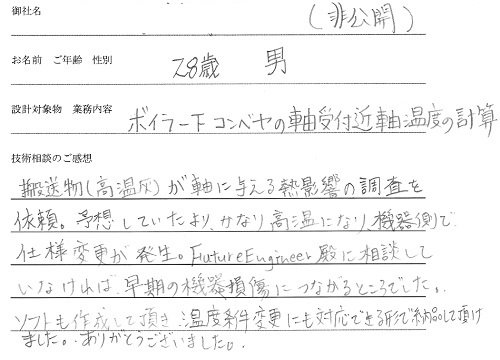 御社名 (非公開)
お名前 ご年齢 性別 28歳 男
設計対象物 業務内容 ボイラー下コンベヤの軸受付近軸温度の計算
技術相談のご感想
搬送物(高温灰)が軸に与える熱影響の調査を
依頼。予想していたより、かなり高温になり、機器側で
仕様変更が発生。FutureEngineer殿に相談して
いなければ、早期の機器損傷につながるところでした。
ソフトも作成して頂き、温度条件変更にも対応できる形で納品して頂け
ました。ありがとうございました。